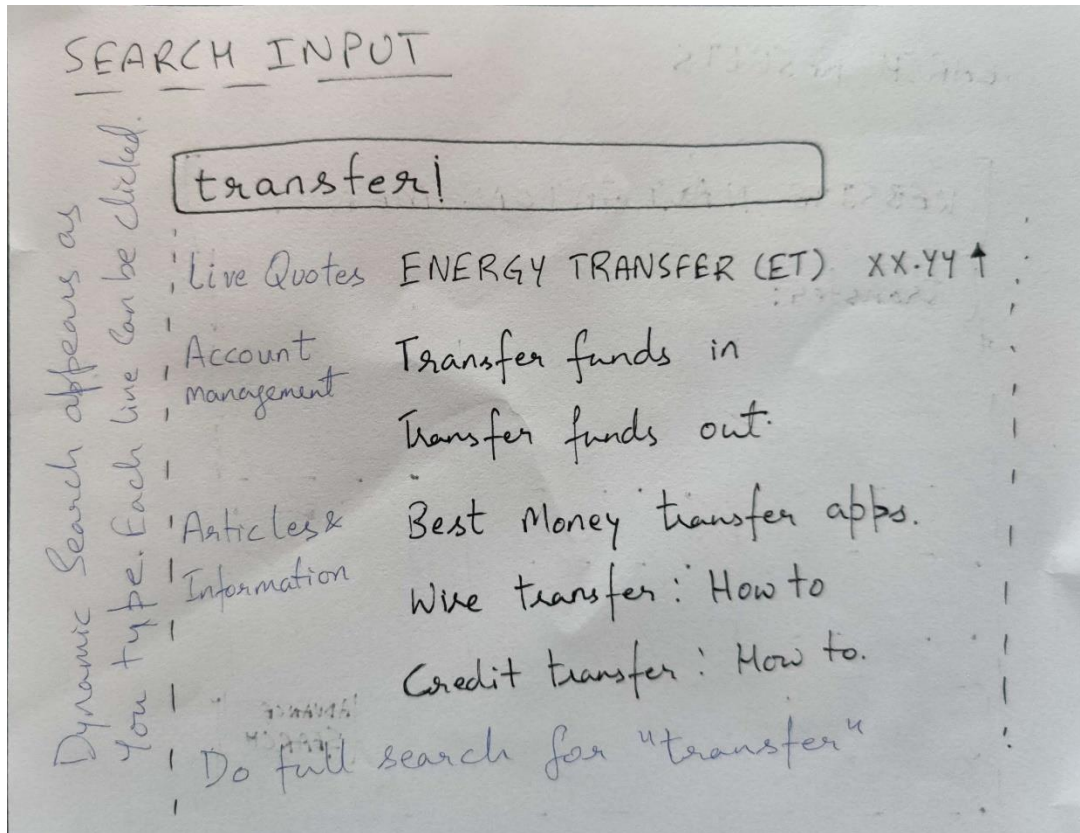 SEARCH INPUT
Dynamic Search appears as
You type. Each line can be clicked.
transfer|
Live Quotes ENERGY TRANSFER (ET) XX.YY ↑
Account Transfer funds in
management
Transfer funds out.
Articles & Best Money transfer apps.
Information Wire transfer: How to
Credit transfer: How to.
Do full search for "transfer"